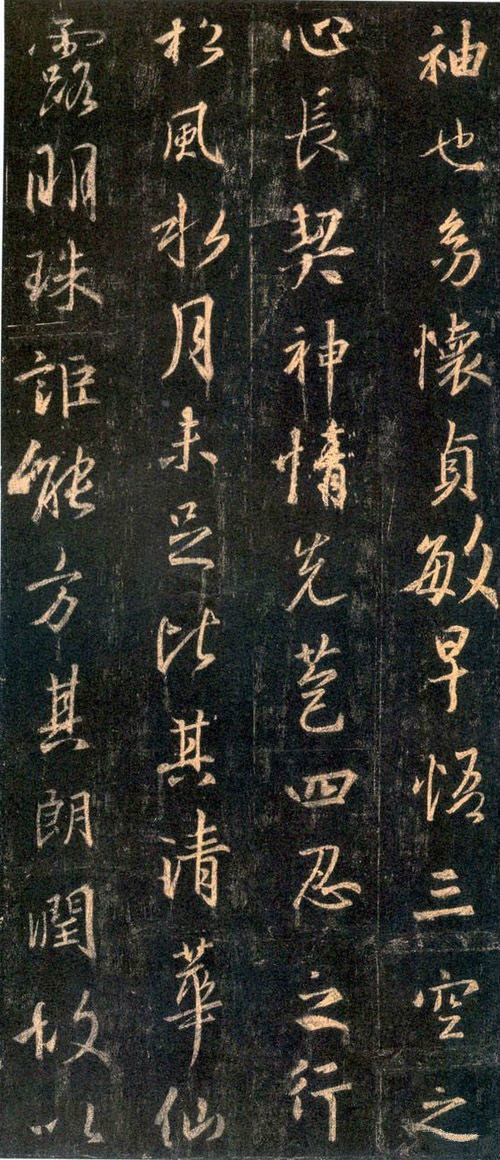 袖也㓜懷貞敏早悟三空之
心長契神情先苞四忍之行
松風水月未足比其清華仙
露明珠詎能方其朗潤故以